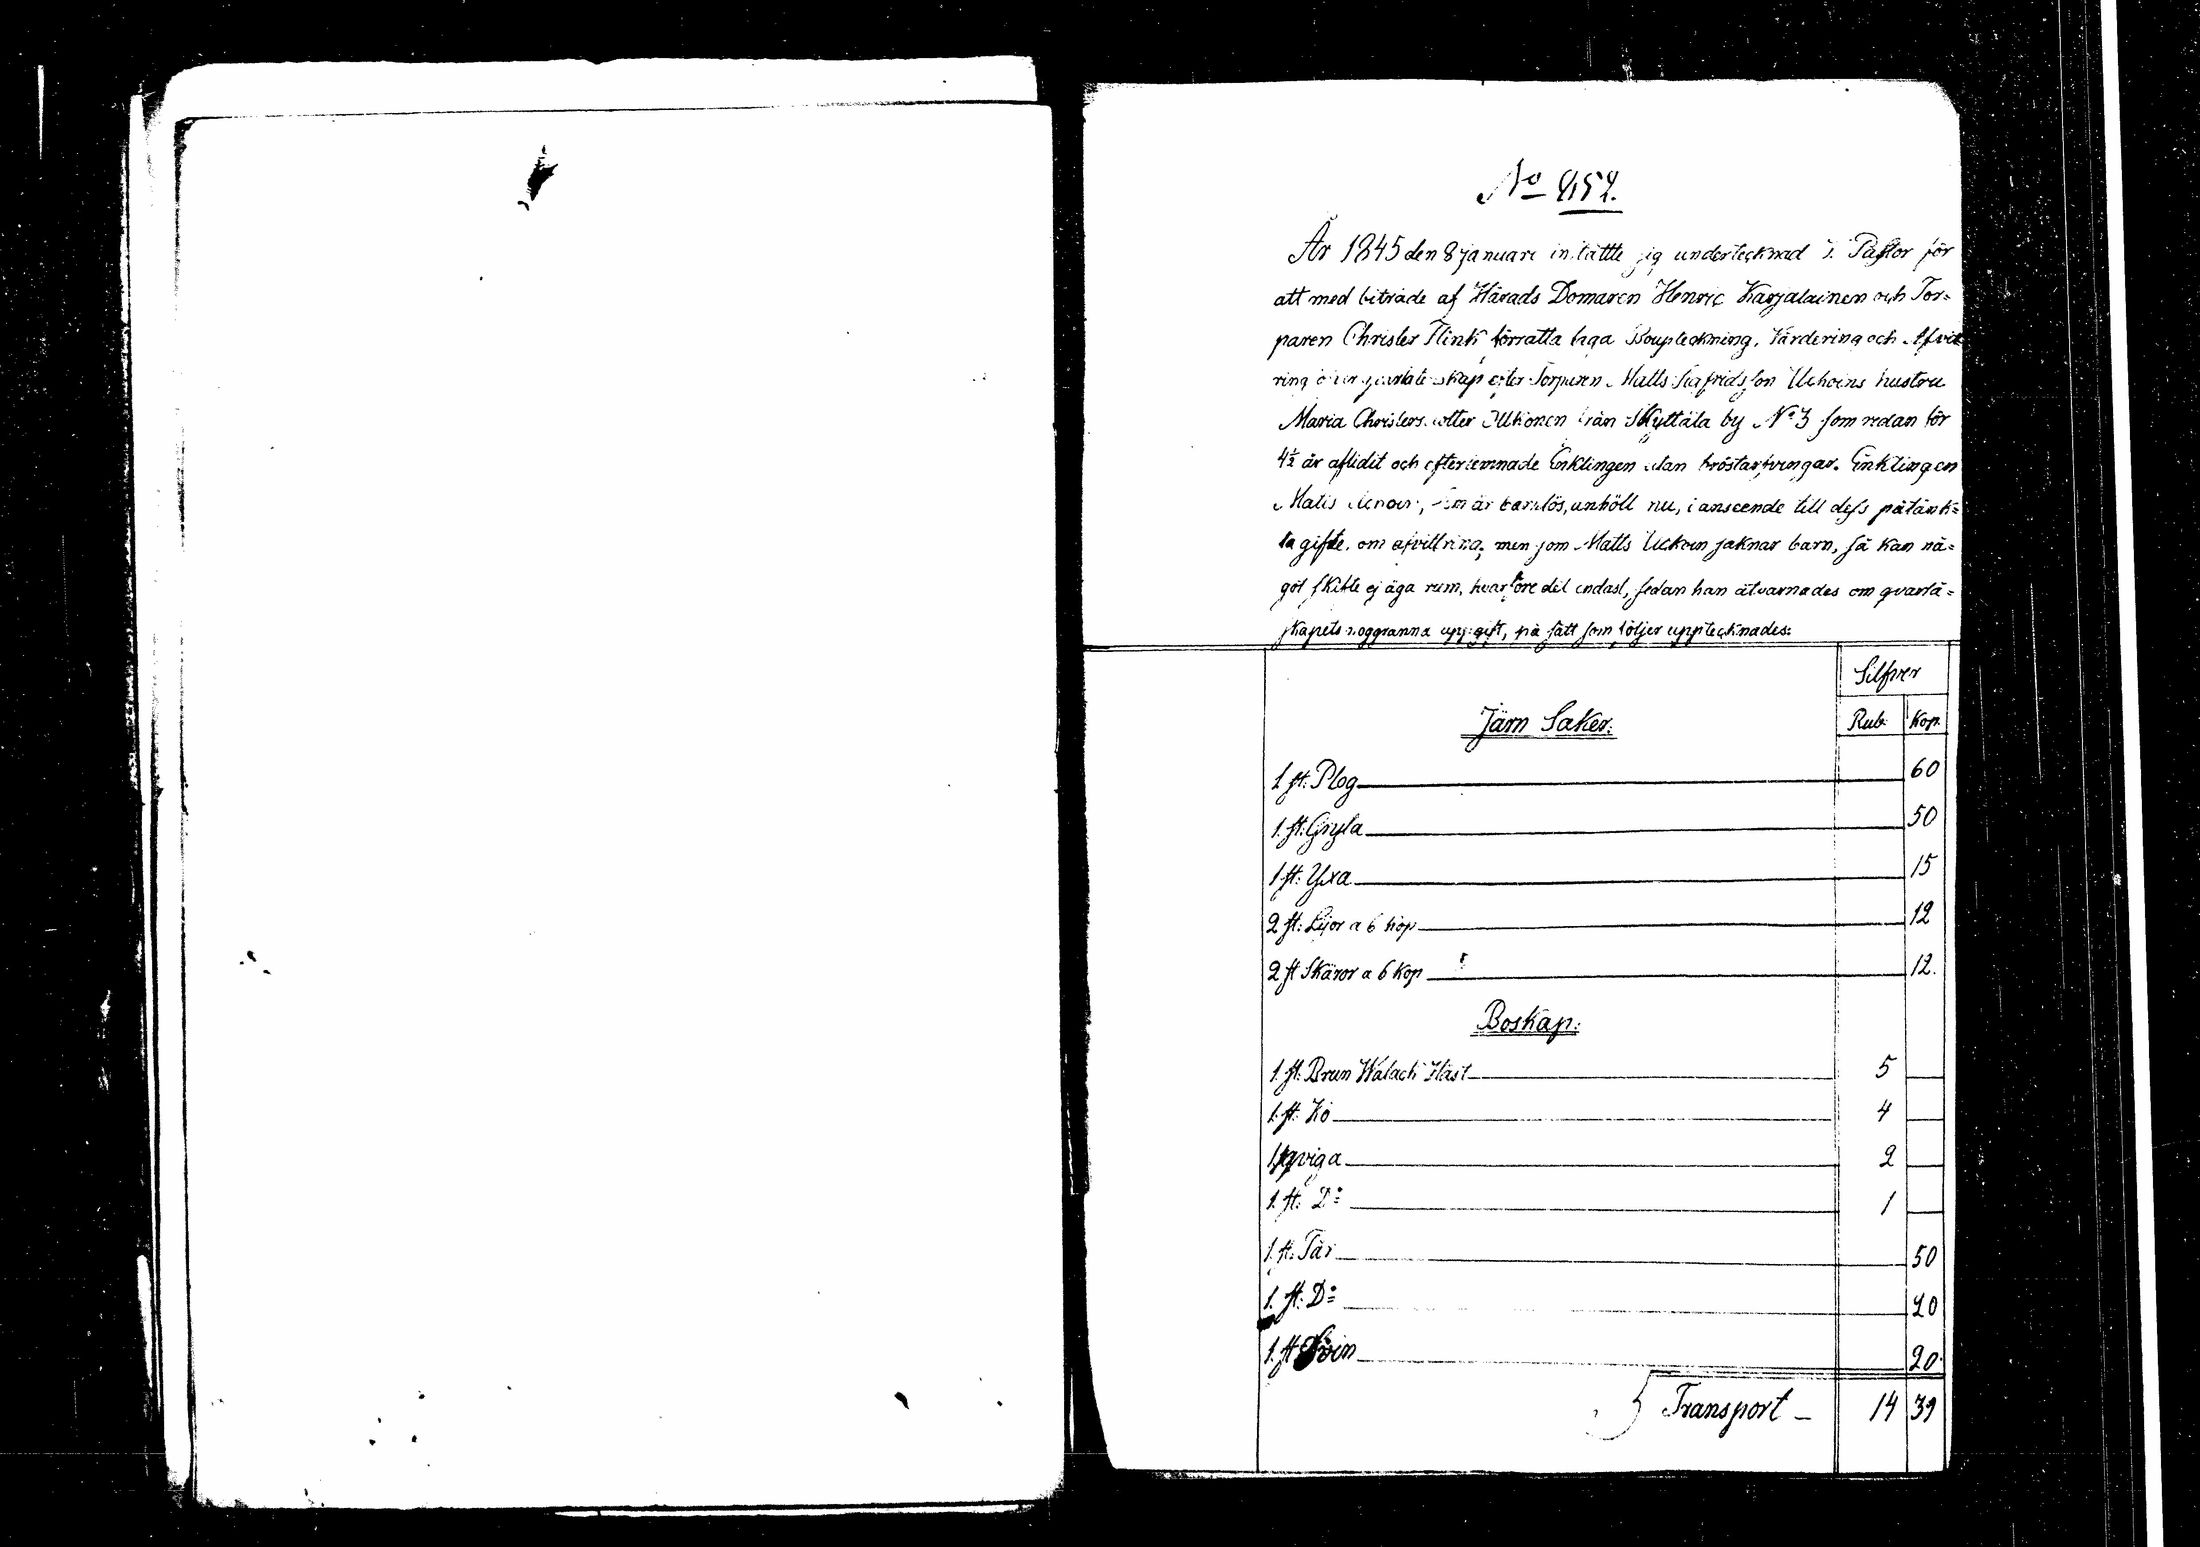 No 252.
År 1845 den 8 januari intättte jig undertecknad v. Pastor för
att med biträde af Härads Domaren Henric Karjalainen och Tor=
paren Christer Flink förrätta laga Boupteckning, Värdering och Afvitt
ring öfver qvarlåtenskap efter Torparen Matts Siafridsson Uckoins hustru
Maria Christersdotter Ilkonen från Skyttälä by No 3 som redan för
4½ år aflidit och efterlemnade Enklingen utan bröstarfvingar. Enklingen
Matts, som är barnlös, anhöll nu, i anseende till dess påtänk=
ta gifte, om afvittring; men som Matts Uckoin saknar barn, så kan nå=
got skifte ej äga rum, hvarföre det endast, sedan han åtvarnades om qvarlå=
skapets noggranna uppgift, på sätt som följer upptecknades:
Silfver
Järn Saker: Rub. Kop.
1 st: Plog 60
1. st: Gryta 50
1 st: Yxa 15
2 st: Lijor a 6 kop 12
2 st Skäror a 6 Kop 12.
Boskap:
1. st: Brun Walack Häst 5
1. st: Ko 4
1 qviga 2
1. st: Do 1
1. st: Får 50
1. st: Do 20
1. st Svin 20.
Transport 14 39